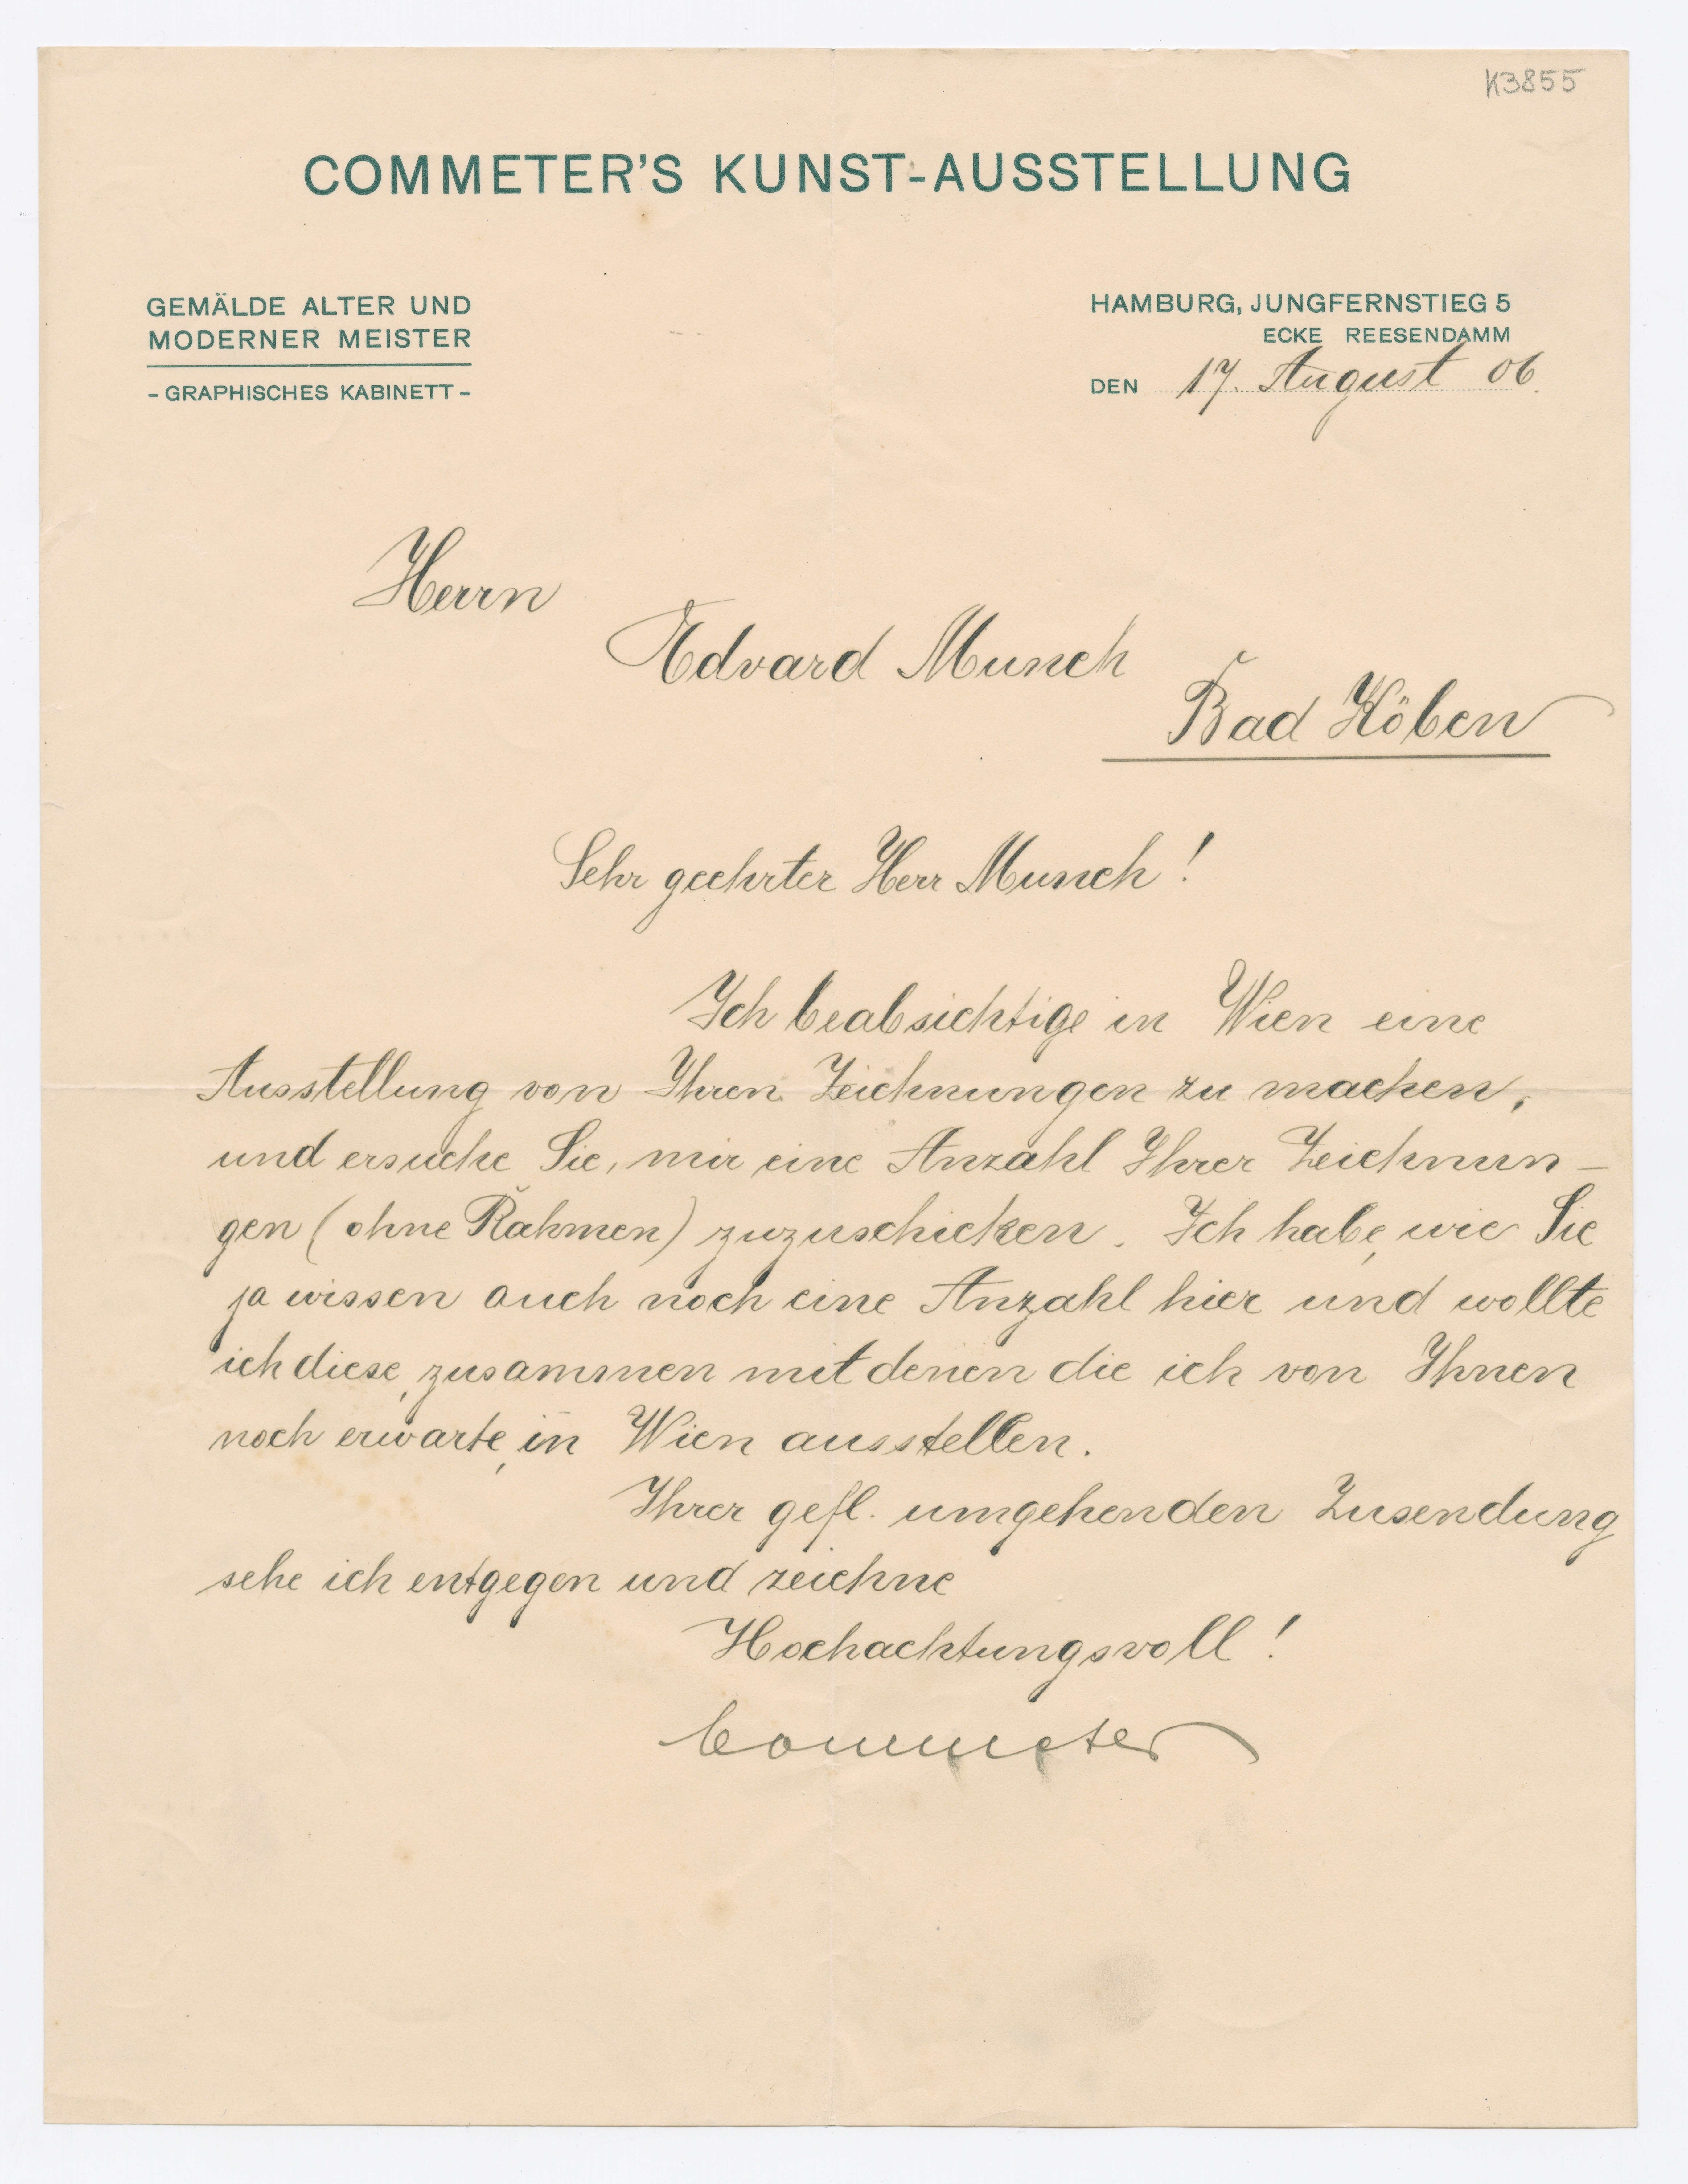 K3855
COMMETER'S KUNST-AUSSTELLUNG
GEMÄLDE ALTER UND
MODERNER MEISTER
- GRAPHISCHES KABINETT -
HAMBURG, JUNGFERNSTIEG 5
ECKE REESENDAMM
DEN 17. August 06.
Herrn
Edvard Munch
Bad Köben
Sehr geehrter Herr Munch!
Ich beabsichtige in Wien eine
Ausstellung von Ihren Zeichnungen zu machen,
und ersuche Sie, mir eine Anzahl Ihrer Zeichnun-
gen (ohne Rahmen) zuzuschicken. Ich habe, wie Sie
ja wissen auch noch eine Anzahl hier und wollte
ich diese, zusammen mit denen die ich von Ihnen
noch erwarte, in Wien ausstellen.
Ihrer gefl. umgehenden Zusendung
sehe ich entgegen und zeichne
Hochachtungsvoll!
Commeter